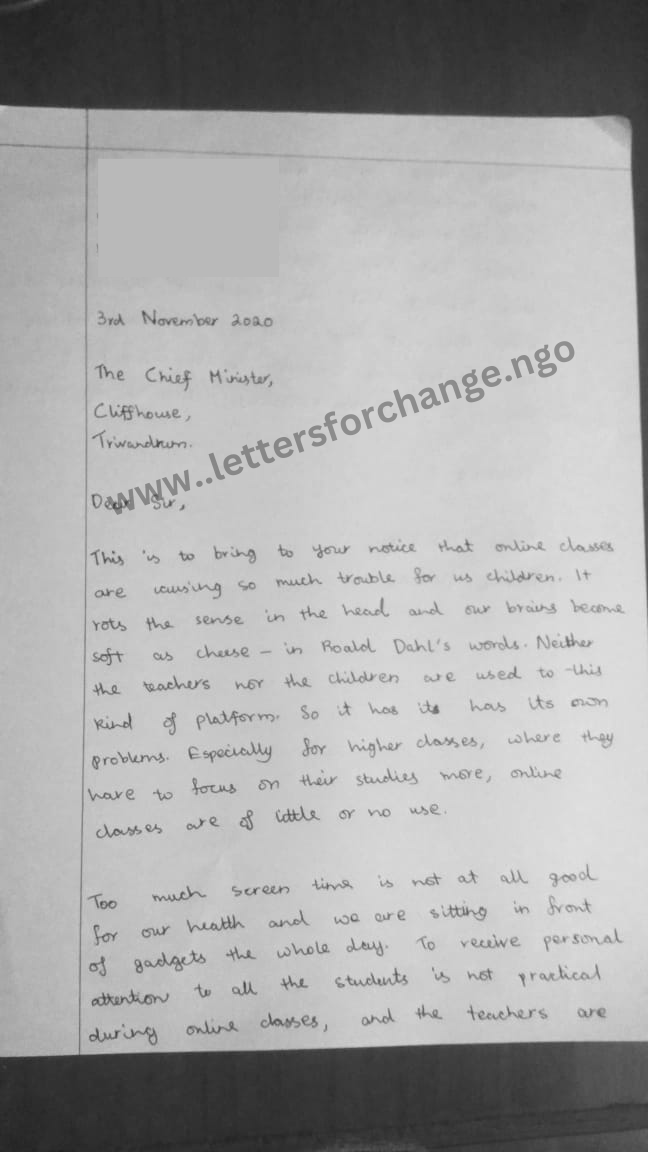 3rd November 2020
The Chief Minister,
Cliffhouse,
Trivandrum.
www..lettersforchange.ngo
Dear Sir,
This is to bring to your notice that online classes
are causing so much trouble for us children. It
rots the sense in the head and our brains become
soft as cheese – in Roald Dahl's words. Neither
the teachers nor the children are used to this
kind of platform. So it has its has its own
problems. Especially for higher classes, where they
have to focus on their studies more, online
classes are of little or no use.
Too much screen time is not at all good
for our health and we are sitting in front
of gadgets the whole day. To receive personal
attention to all the students is not practical
during online classes, and the teachers are